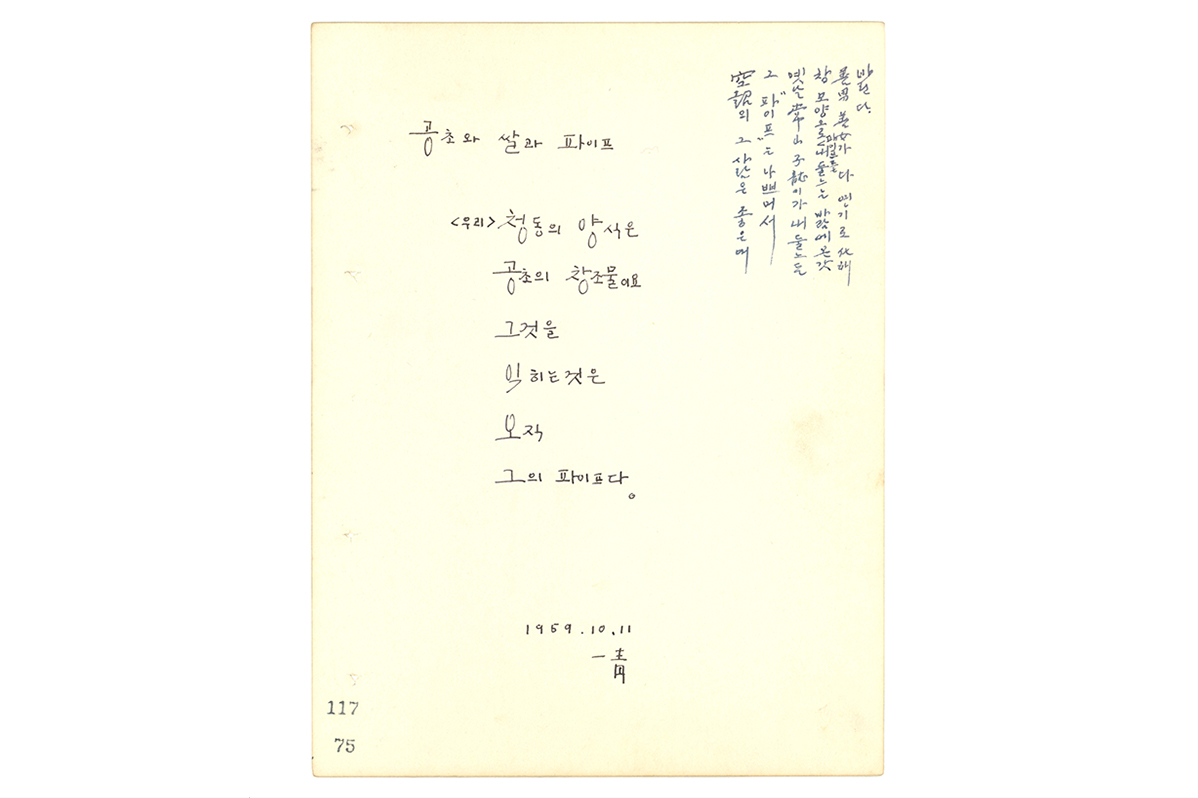 공초와 쌀과 파이프
<우리> 청동의 양식은
공초의 창조물이요
그것을
익히는것은
오직
그의 파이프다。
1959.10.11
一靑
空超의 그 사람은 좋은데
그 "파이프"는 나쁘며서
옛날 常山 子龍이가 내둘느든
창 모양으로 내둘느는 바람에 온갖
善男善女가 다 연기로 化해
바린다.
117
75